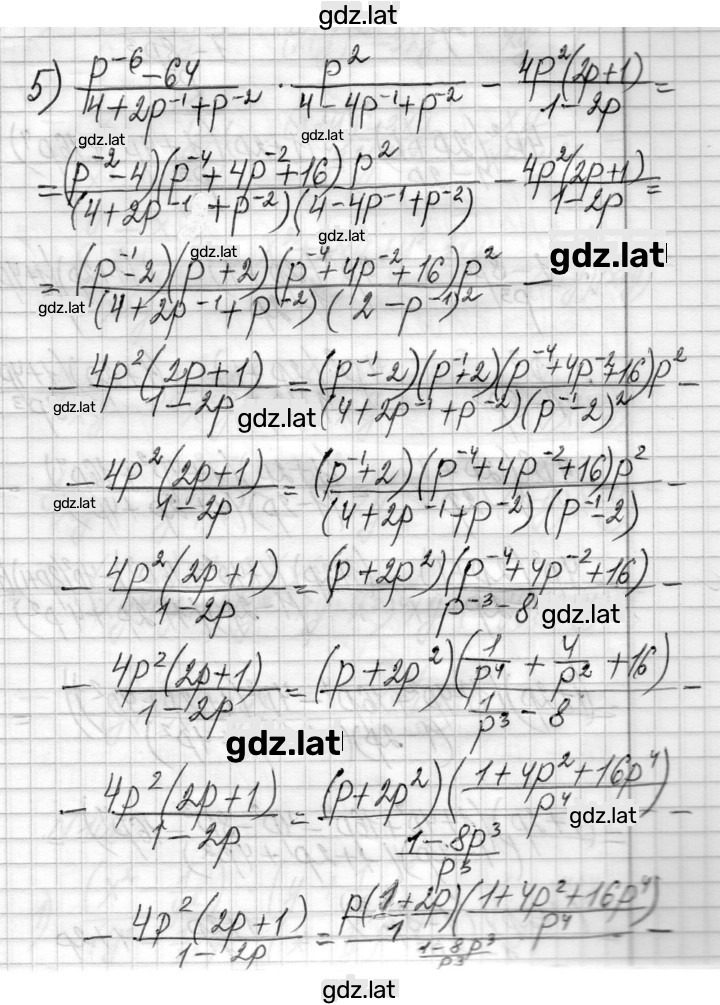 gdz.lat
5) (p⁻⁶ - 64)/(4 + 2p⁻¹ + p⁻²) · p²/(4 - 4p⁻¹ + p⁻²) - 4p²(2p+1)/(1-2p) =
gdz.lat
gdz.lat
= (p⁻² - 4)(p⁻⁴ + 4p⁻² + 16)p²/((4 + 2p⁻¹ + p⁻²)(4 - 4p⁻¹ + p⁻²)) - 4p²(2p+1)/(1-2p) =
gdz.lat
gdz.lat
gdz.lat
= (p⁻¹ - 2)(p⁻¹ + 2)(p⁻⁴ + 4p⁻² + 16)p²/((4 + 2p⁻¹ + p⁻²)(2 - p⁻¹)²) -
gdz.lat
- 4p²(2p+1)/(1-2p) = (p⁻¹ - 2)(p⁻¹ + 2)(p⁻⁴ + 4p⁻² + 16)p²/((4 + 2p⁻¹ + p⁻²)(p⁻¹ - 2)²) -
gdz.lat
gdz.lat
- 4p²(2p+1)/(1-2p) = (p⁻¹ + 2)(p⁻⁴ + 4p⁻² + 16)p²/((4 + 2p⁻¹ + p⁻²)(p⁻¹ - 2)) -
gdz.lat
- 4p²(2p+1)/(1-2p) = (p + 2p²)(p⁻⁴ + 4p⁻² + 16)/(p⁻³ - 8) -
gdz.lat
- 4p²(2p+1)/(1-2p) = (p + 2p²)(1/p⁴ + 4/p² + 16)/(1/p³ - 8) -
gdz.lat
- 4p²(2p+1)/(1-2p) = (p + 2p²)((1 + 4p² + 16p⁴)/p⁴)/((1 - 8p³)/p³) -
gdz.lat
- 4p²(2p+1)/(1-2p) = (p(1+2p)/1)((1 + 4p² + 16p⁴)/p⁴)/((1 - 8p³)/p³) -
gdz.lat